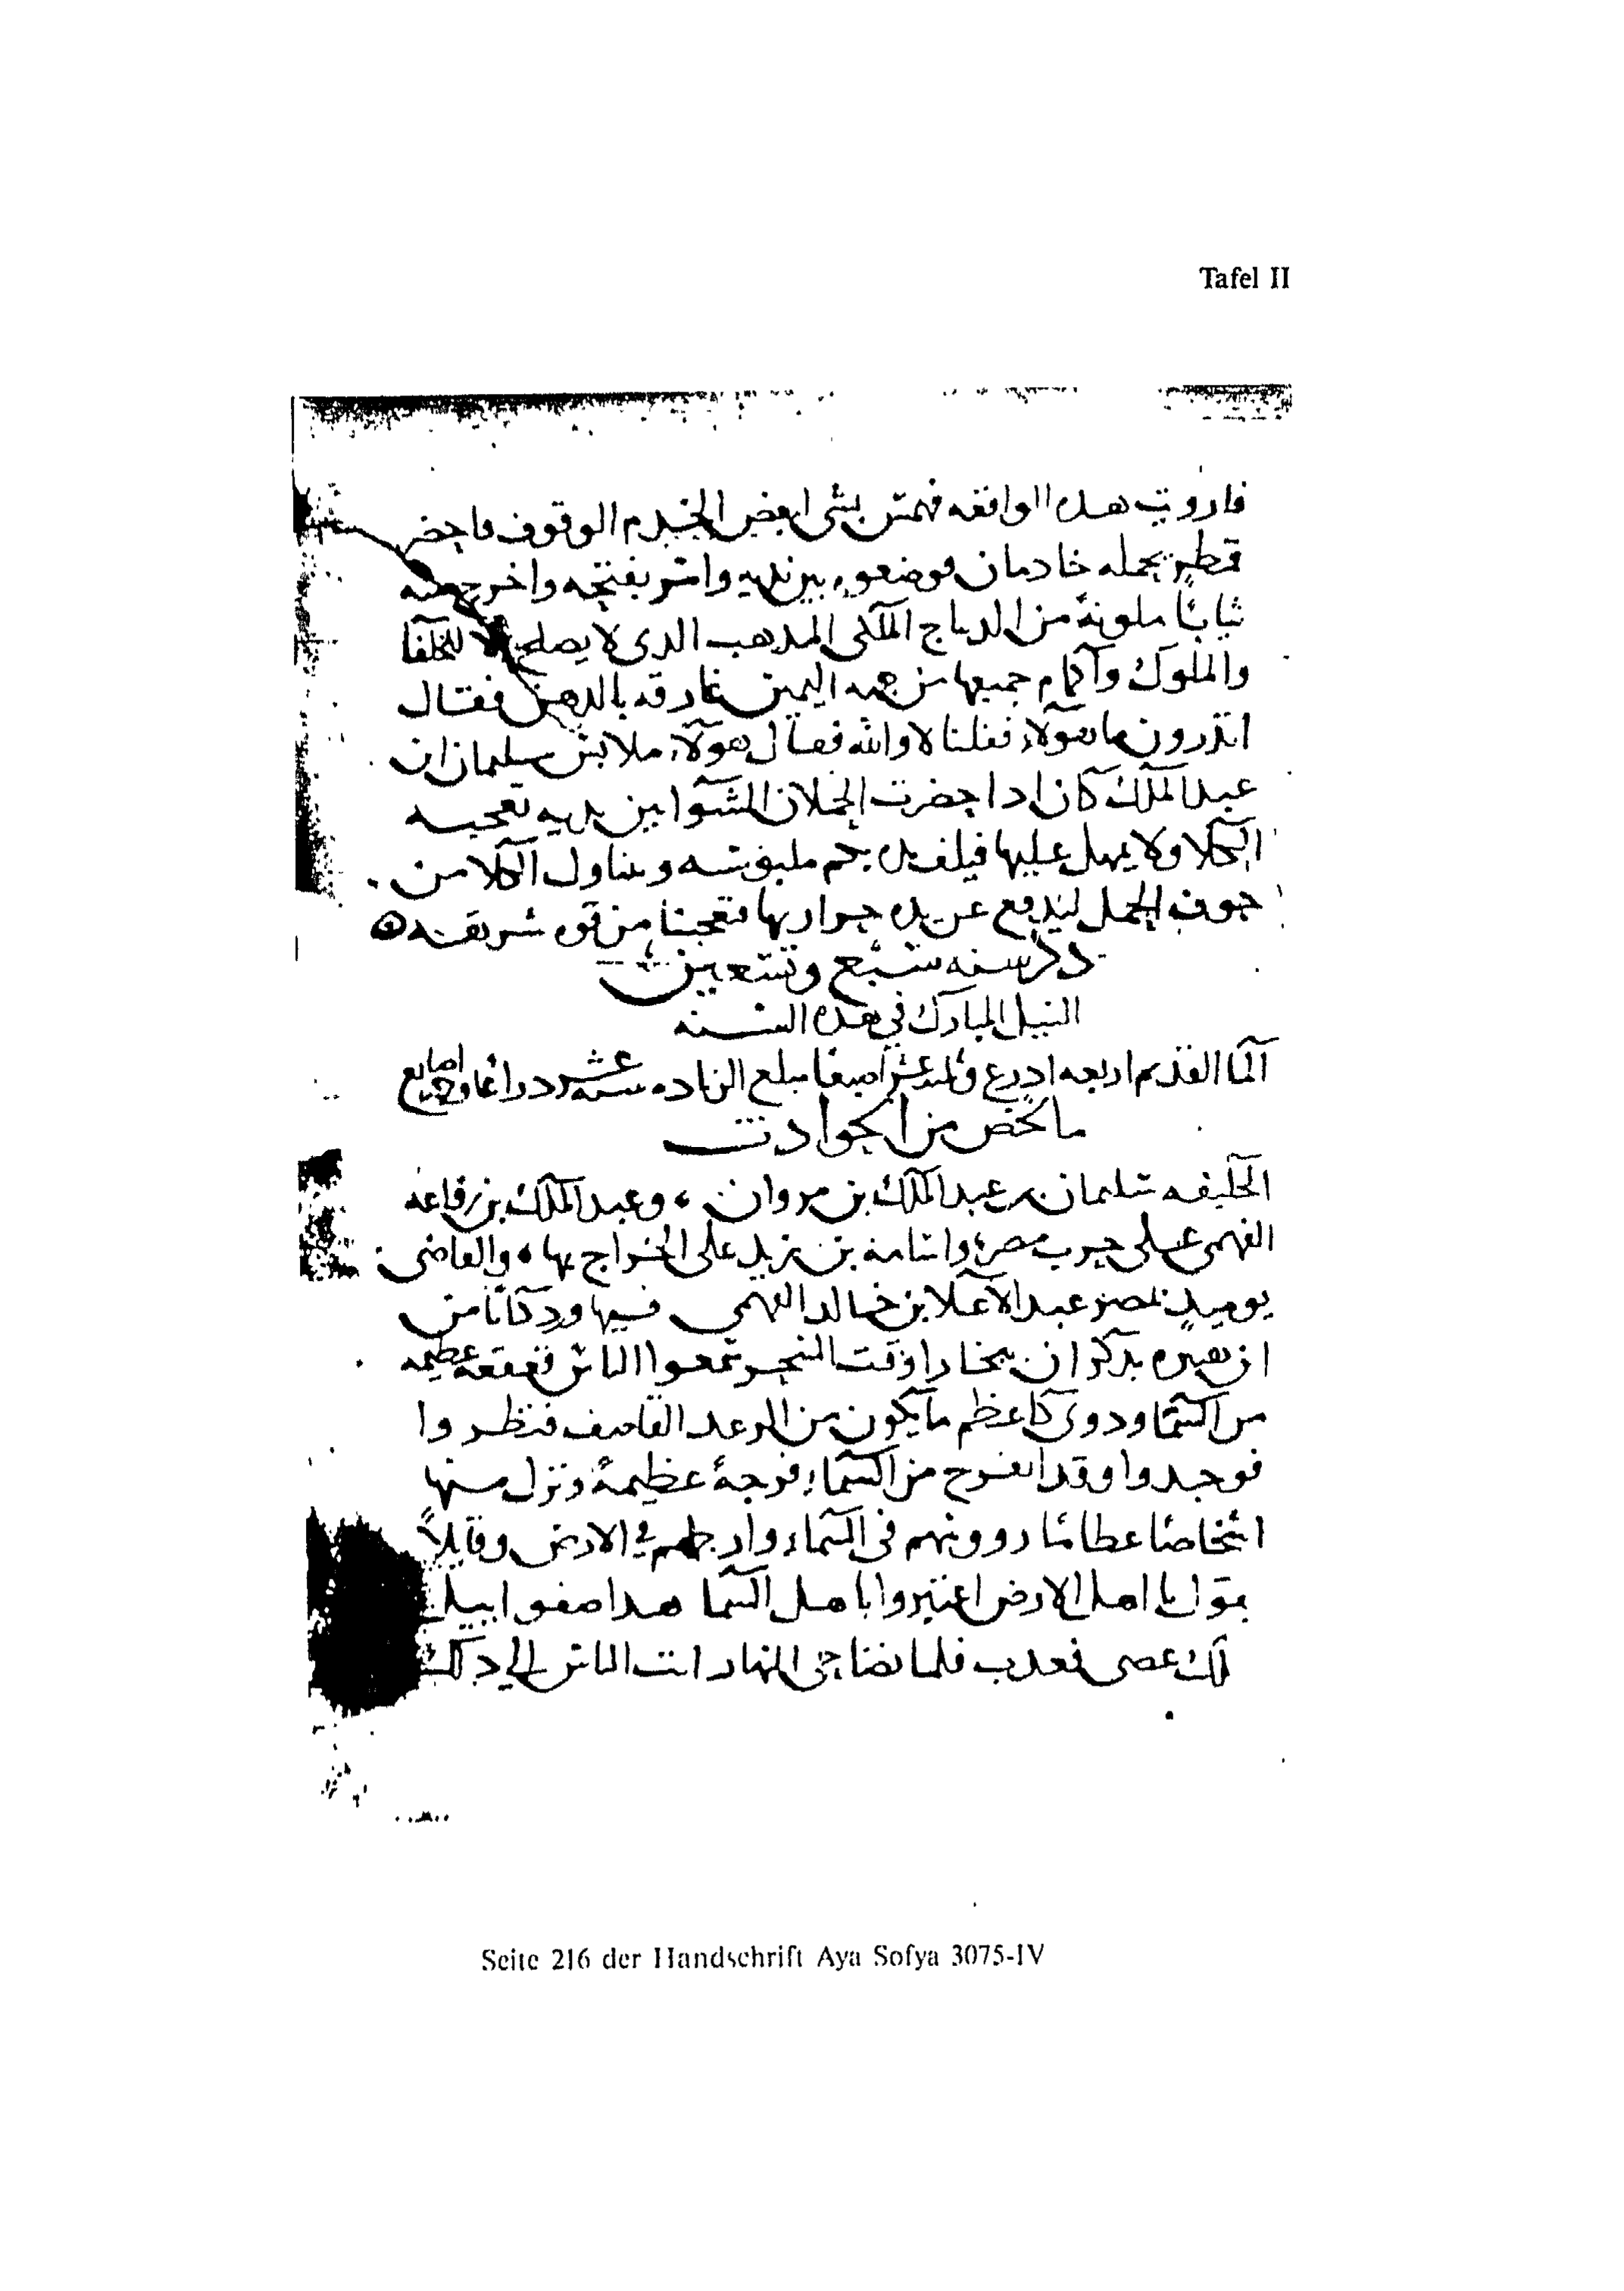 Tafel II
فاروت هده الواقعه فهمس بشى لبعض الخدم الوقوف فاحضر
قمطر بحمله خادمان فوضعوه بين يديه وامر بفتحه واخرج منه
ثيابًا ملونةً من الديباج الملكى المدهب الدى لا يصلح الا للخلفا
والملوك واكمام جميعها من جهه اليمين غارقه بالدهن فقال
اتدرون ما هولاء فقلنا لا والله فقال هولاء ملابس سليمان ابن
عبد الملك كان ادا حضرت الخملان الشوا بين يديه تعجبه
الكلا ولا يمهل عليها فيلف يده بكم ملبوسه ويتناول الكلا من
جوف الحمل ليدفع عن يده حرارتها فتعجبنا من قوه شر نفسه
دكر سنه سبع وتسعين
النيل المبارك فى هده السنه
الما القديم اربعه ادرع وثلثه عشر اصبعا مبلغ الزياده سته عشر دراعًا و اصابع
ما لخص من الحوادث
الخليفه سليمان بن عبد الملك بن مروان وعبد الملك بن رفاعه
الفهمى على حرب مصر واسامه بن يزيد على الخراج بها والقاضى
يوميدٍ بمصر عبد الاعلا بن خالد الفهمى فيها ورد كتابًا من
ابن هبيره يدكر ان ببخارا وقت الفجر سمعوا الناس قعقعه عظيمه
من السما ودوى كاعظم ما يكون من الرعد القاصف فنظروا
فوجدوا وقد انفرج من السماء فرجةً عظيمةً ونزل منها
اشخاصًا عظامًا رووسهم فى السماء وارجلهم فى الارض وقايلاً
يقول يا اهل الارض اعتبروا باهل السما هدا صفوابيل
ملك عصى فعدب فلما تضاحى النهار اتت الناس الى دلك
Seite 216 der Handschrift Aya Sofya 3075-IV